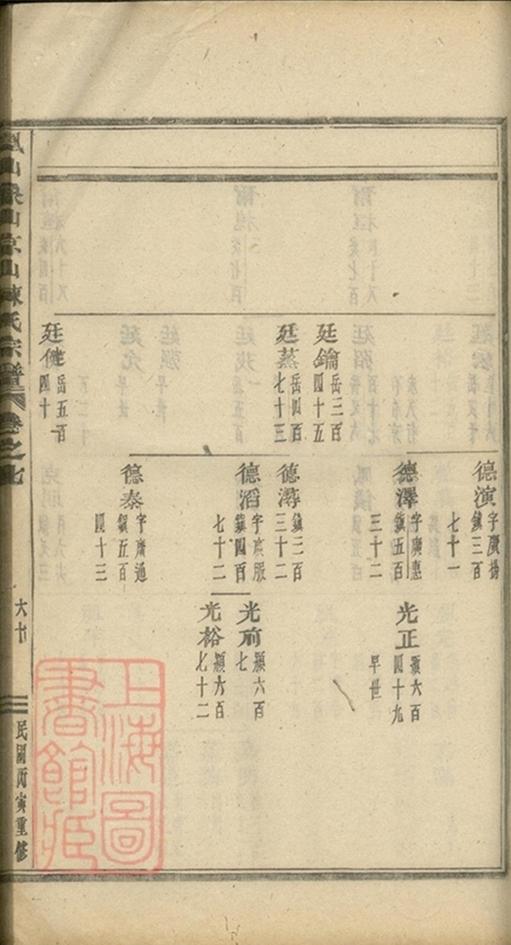 廷鑰
岳三百
四十五
廷蒸
岳四百
七十三
廷健
岳五百
四十
德演
字廣揚
鎮三百
七十一
德澤
字廣惠
鎮五百
三十二
德潯
鎮三百
三十二
德滔
鎮四百
七十二
德泰
字廣通
鎮五百
四十三
光正
六百
四十九
早世
光前
六百
七
光裕
六百
七十二
山京山陳氏宗譜
卷之七
民國丙寅重修
上海圖
書館藏